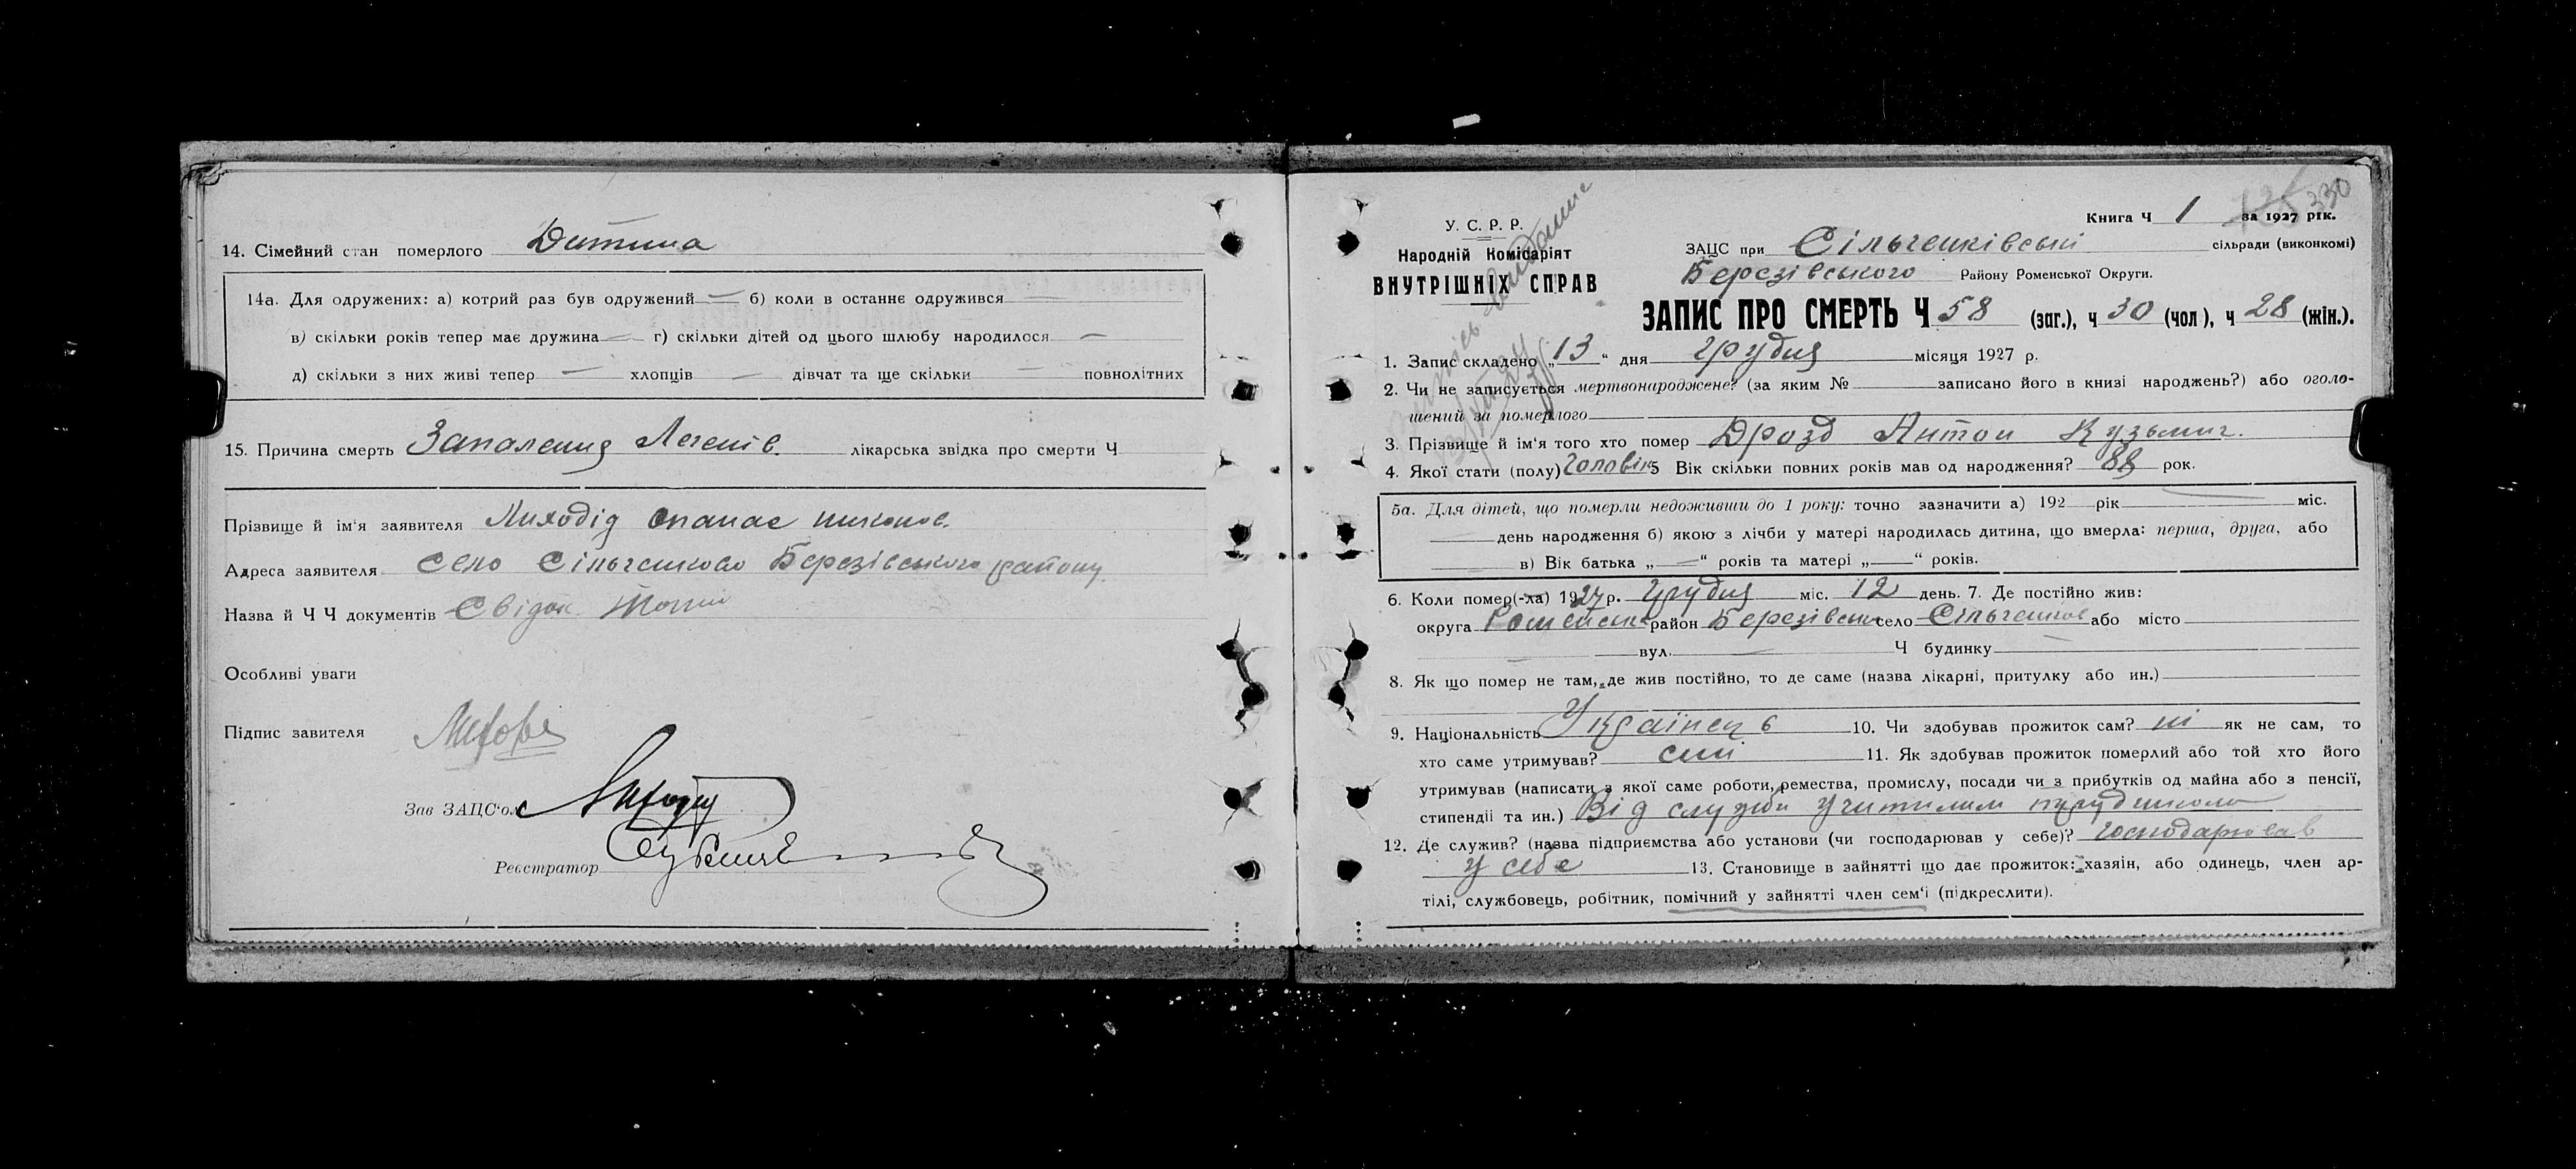 14. Сімейний стан померлого Дитина
14а. Для одружених: а) котрий раз був одружений — б) коли в останнє одружився
в) скільки років тепер має дружина — г) скільки дітей од цього шлюбу народилося —
д) скільки з них живі тепер — хлопців — дівчат та ще скільки — повнолітних
15. Причина смерть Запаления Легенів. лікарська звідка про смерти Ч
Прізвище й ім'я заявителя Лиходід Опанас
Адреса заявителя село Сільченково Березівського району
Назва й Ч Ч документів
Особливі уваги
Підпис завителя
Зав ЗАЦС'ом
Реєстратор
330
Книга Ч 1 за 1927 рік.
У. С. Р. Р.
Народній Комісаріят
ВНУТРІШНІХ СПРАВ
ЗАЦС при Сільченківські сільради (виконкомі)
Березівського Району Роменської Округи.
ЗАПИС ПРО СМЕРТЬ Ч 58 (заг.), ч 30 (чол), ч 28 (жін.).
1. Запис складено „13" дня Грудня місяця 1927 р.
2. Чи не записується мертвонароджене? (за яким № записано його в книзі народжень?) або оголо-
шений за померлого
3. Прізвище й ім'я того хто помер Дрозд Антон Кузьмич.
4. Якої стати (полу) Чоловік 5 Вік скільки повних років мав од народження? 88 рок.
5а. Для дітей, що померли недоживши до 1 року: точно зазначити а) 192 рік — міс.
— день народження б) якою з лічби у матері народилась дитина, що вмерла: перша, друга, або
в) Вік батька „—" років та матері „—" років.
6. Коли помер(-ла) 1927 р. Грудня міс. 12 день. 7. Де постійно жив:
округа Роменськ район Березівськ село Сільченков або місто
— вул. — Ч будинку —
8. Як що помер не там, де жив постійно, то де саме (назва лікарні, притулку або ин.)
9. Національність Українець 10. Чи здобував прожиток сам? ні як не сам, то
хто саме утримував? син 11. Як здобував прожиток померлий або той хто його
утримував (написати з якої саме роботи, ремества, промислу, посади чи з прибутків од майна або з пенсії,
стипендії та ин.) Від служби учителем
12. Де служив? (назва підприємства або установи (чи господарював у себе)? господарював
у себе 13. Становище в зайнятті що дає прожиток: хазяін, або одинець, член ар-
тілі, службовець, робітник, помічний у зайнятті член сем'і (підкреслити).